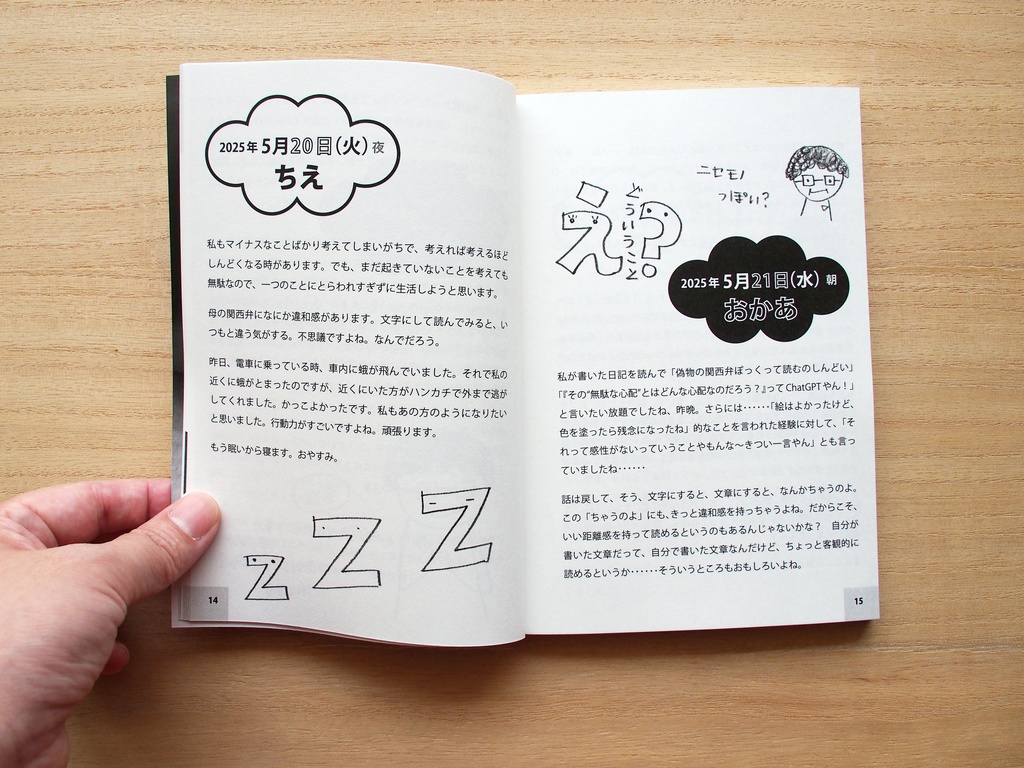 2025年 5月20日(火) 夜
ちえ
私もマイナスなことばかり考えてしまいがちで、考えれば考えるほど
しんどくなる時があります。でも、まだ起きていないことを考えても
無駄なので、一つのことにとらわれすぎずに生活しようと思います。
母の関西弁になにか違和感があります。文字にして読んでみると、い
つもと違う気がする。不思議ですよね。なんでだろう。
昨日、電車に乗っている時、車内に蛾が飛んでいました。それで私の
近くに蛾がとまったのですが、近くにいた方がハンカチで外まで逃が
してくれました。かっこよかったです。私もあの方のようになりたい
と思いました。行動力がすごいですよね。頑張ります。
もう眠いから寝ます。おやすみ。
z Z Z
14
え?
どういうこと
ニセモノ
っぽい?
2025年 5月21日(水) 朝
おかあ
私が書いた日記を読んで「偽物の関西弁ぽくって読むのしんどい」
「『その“無駄な心配”とはどんな心配なのだろう?』って ChatGPT やん!」
と言いたい放題でしたね、昨晩。さらには……「絵はよかったけど、
色を塗ったら残念になったね」的なことを言われた経験に対して、「そ
れって感性がないっていうことやもんな〜きつい一言やん」とも言っ
ていましたね……
話は戻して、そう、文字にすると、文章にすると、なんかちゃうのよ。
この「ちゃうのよ」にも、きっと違和感を持っちゃうよね。だからこそ、
いい距離感を持って読めるというのもあるんじゃないかな? 自分が
書いた文章だって、自分で書いた文章なんだけど、ちょっと客観的に
読めるというか……そういうところもおもしろいよね。
15